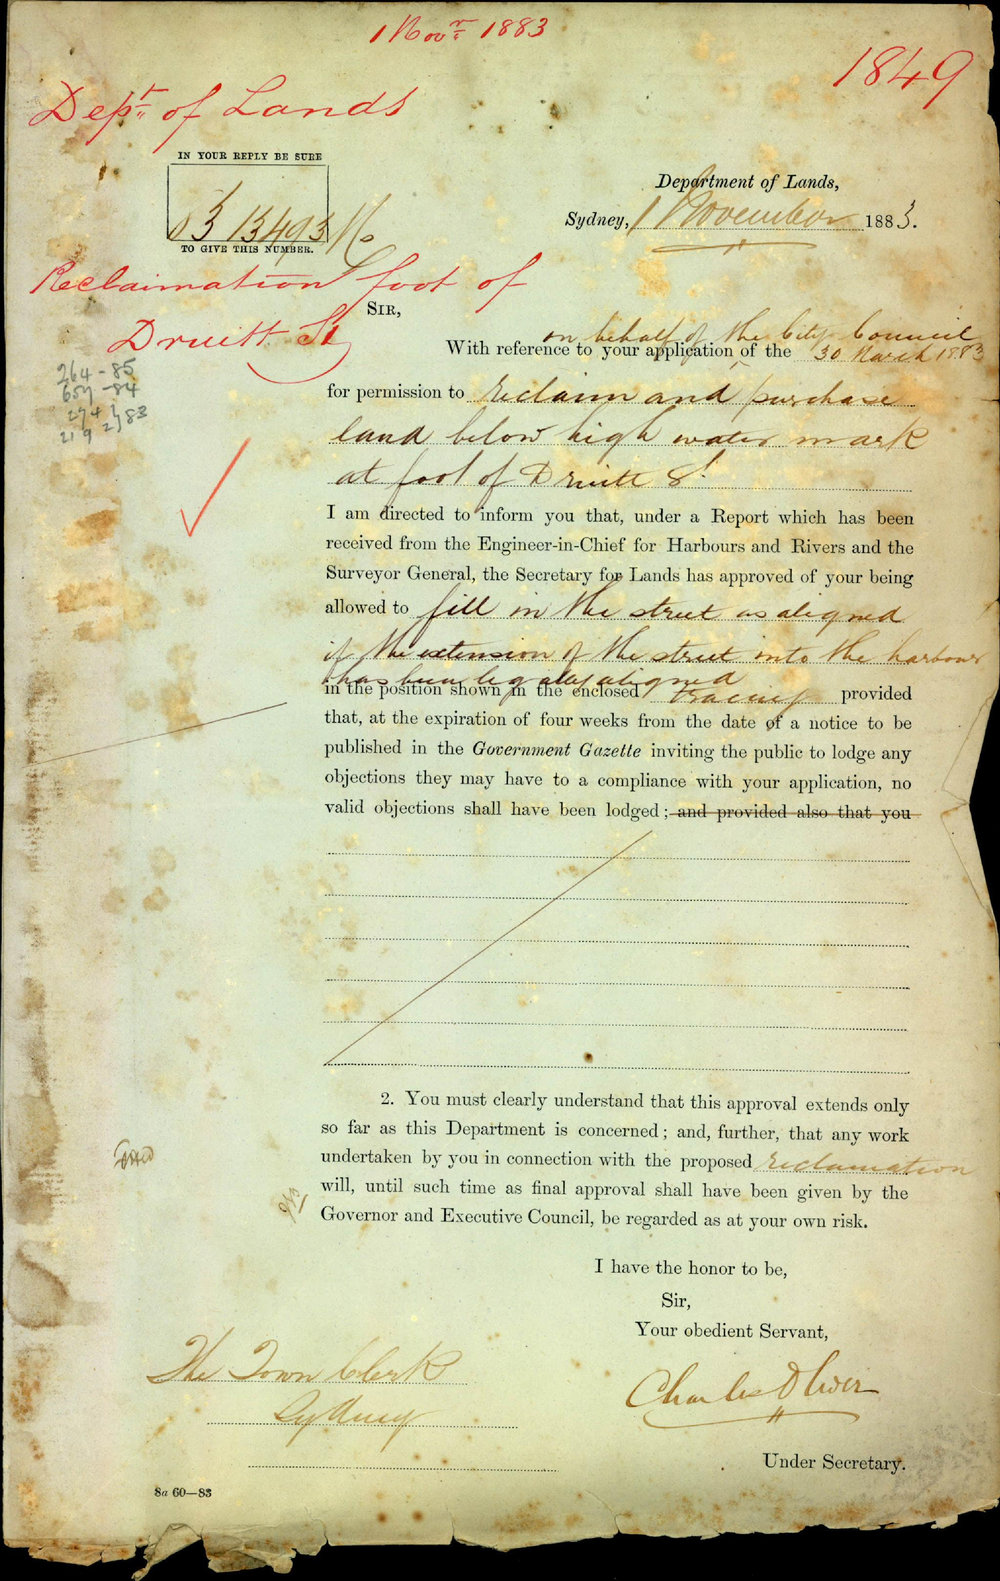 1 Novr 1883
1849
Dept of Lands
IN YOUR REPLY BE SURE
83 13493
TO GIVE THIS NUMBER.
Department of Lands,
Sydney, 1 November 1883.
Reclamation foot of
Druitt St
264-85
657-84
274 } 83
219 2
SIR,
on behalf of the City Council
With reference to your application of the 30 March 1883
for permission to reclaim and purchase
land below high water mark
at foot of Druitt St.
I am directed to inform you that, under a Report which has been
received from the Engineer-in-Chief for Harbours and Rivers and the
Surveyor General, the Secretary for Lands has approved of your being
allowed to fill in the street as aligned
if the extension of the street into the harbour
has been legally aligned
in the position shown in the enclosed tracing provided
that, at the expiration of four weeks from the date of a notice to be
published in the Government Gazette inviting the public to lodge any
objections they may have to a compliance with your application, no
valid objections shall have been lodged; and provided also that you
2. You must clearly understand that this approval extends only
so far as this Department is concerned; and, further, that any work
undertaken by you in connection with the proposed reclamation
will, until such time as final approval shall have been given by the
Governor and Executive Council, be regarded as at your own risk.
I have the honor to be,
Sir,
Your obedient Servant,
Charles Oliver
Under Secretary.
The Town Clerk
Sydney
8a 60—83